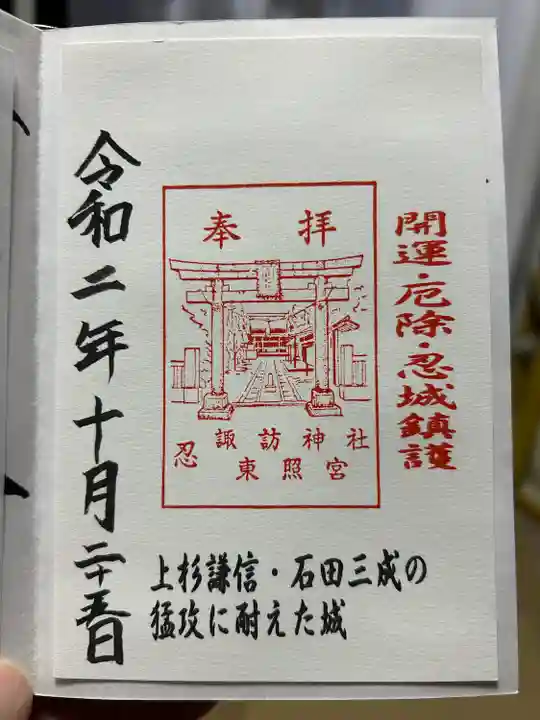 開運・厄除・忍城鎮護
奉拝
諏訪神社
忍東照宮
上杉謙信・石田三成の
猛攻に耐えた城
令和二年十月二十五日